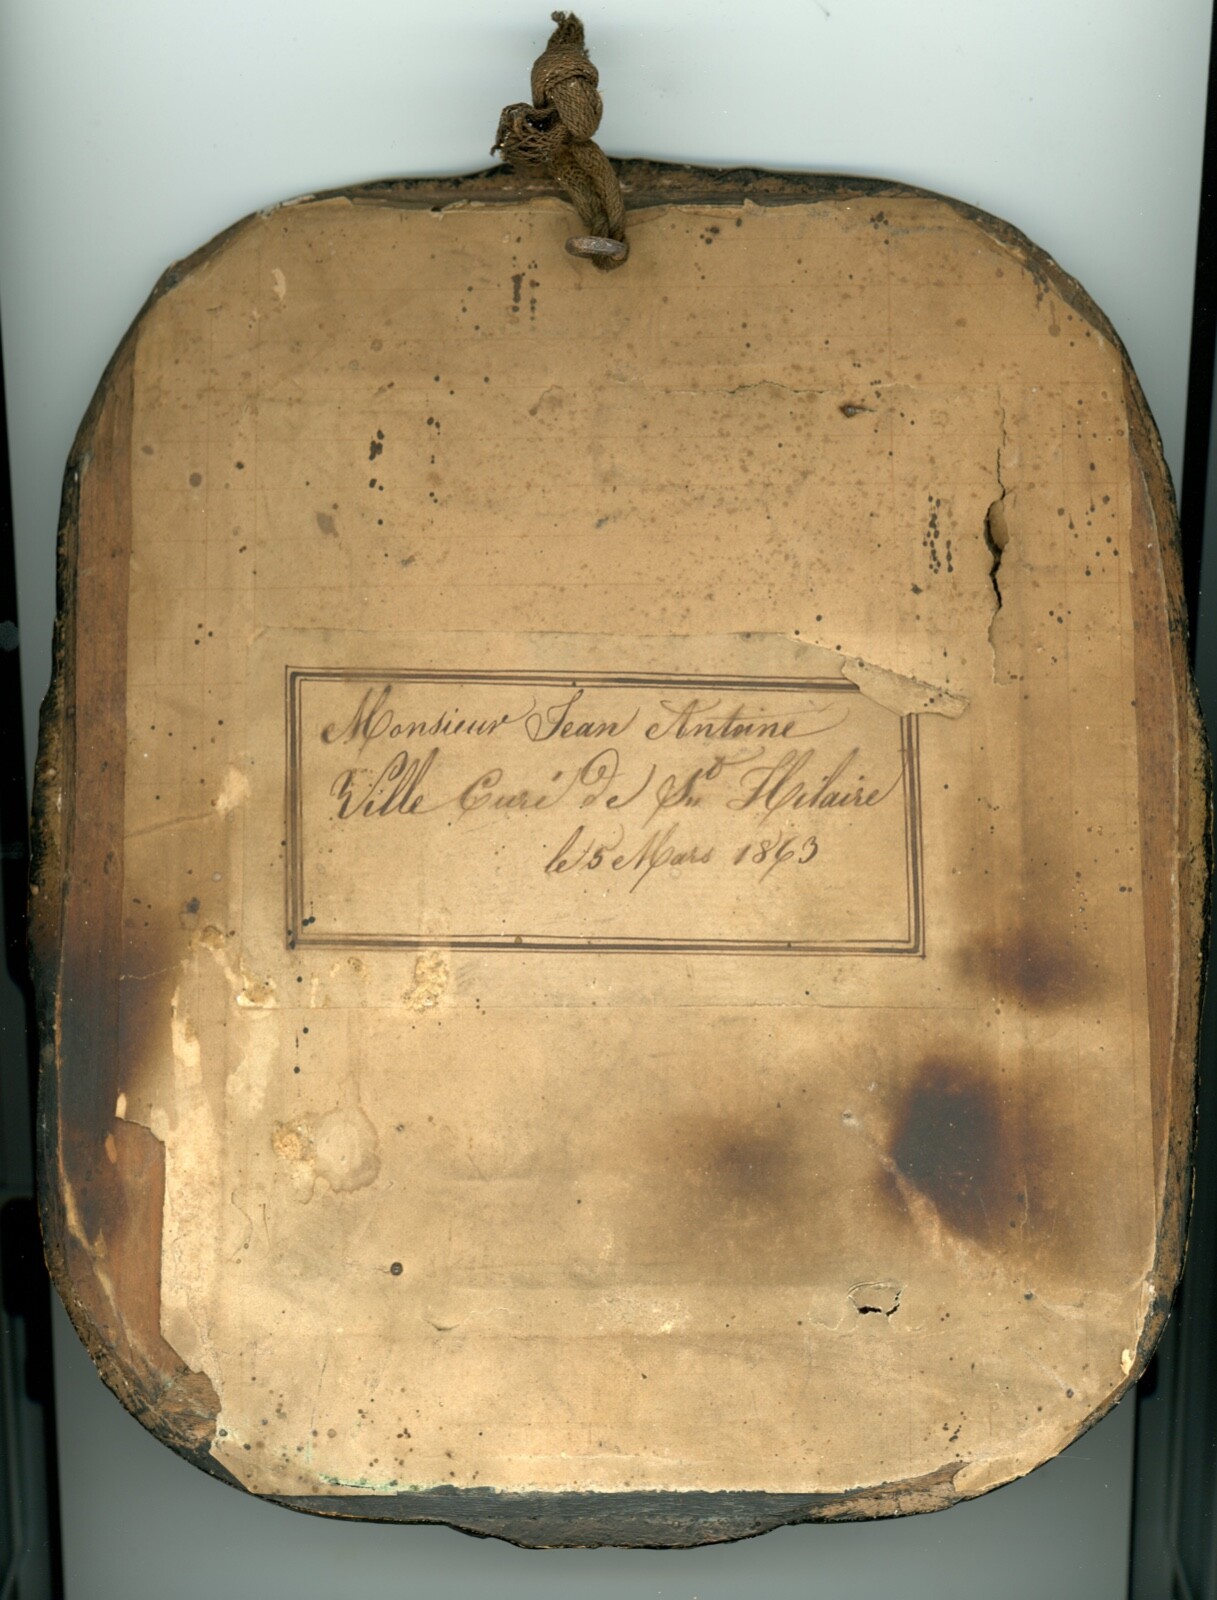 Monsieur Jean Antoine
Ville Curé De St Hilaire
le 5 Mars 1863